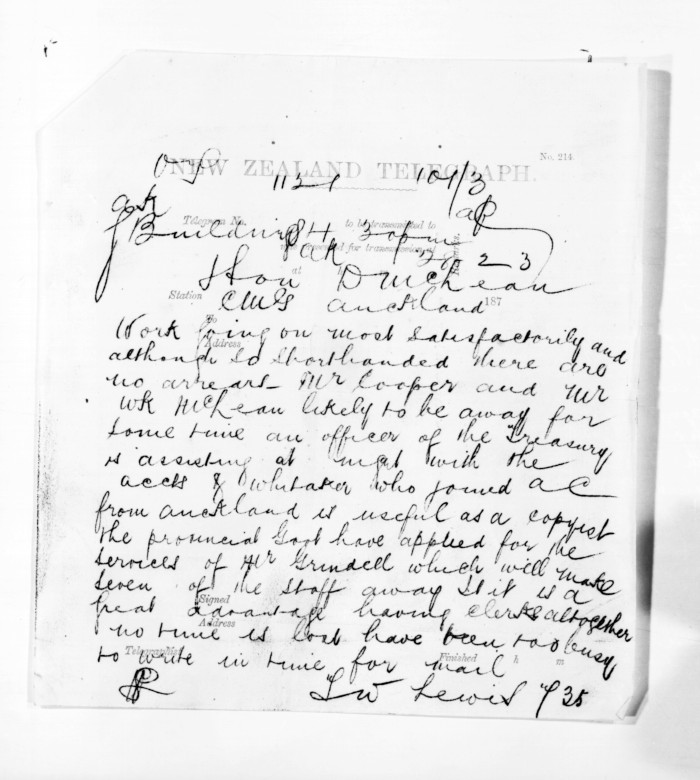 No. 214.
NEW ZEALAND TELEGRAPH.
Telegram No. to be transmitted to
Buildings
for transmission at
Remarks.
23
at
Hon D McLean
Station Auckland 187
To
Work going on most satisfactorily and
Address
although so shorthanded there are
no arrears Mr Cooper and Mr
WK McLean likely to be away for
some time an officer of the Treasury
is assisting at night with the
accts & Whitaker who joined AC
from auckland is useful as a copyist
the provincial Govt have applied for the
services of Mr Grindell which will make
seven of the staff away It it is a
Signed
great advantage having clerks altogether
Address
no time is lost have been too busy
Telegraphed Finished h m
to write in time for mail
H W Lewis 35